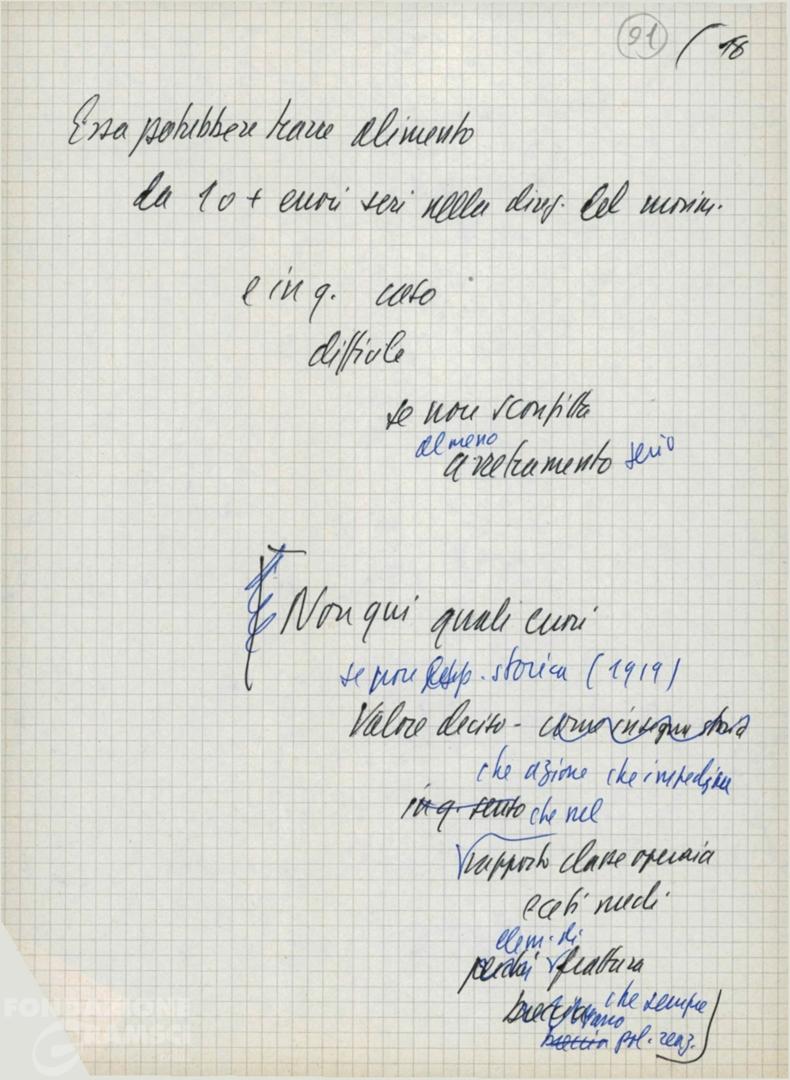 91 ( 18
Essa potrebbe trarre alimento
da 1 o + errori seri nella direz. del movim.
e in q. caso
difficile
se non sconfitta
almeno
arretramento serio
Non qui quali errori
se non resp. storica (1919)
Valore deciso - come insegna storia
che azione che impedisca
in q. senso che nel
rapporto classe operaia
e ceti medi
elem. di
frattura
breccia che sempre
breccia pol. reaz.
FONDAZIONE
GRAMSCI